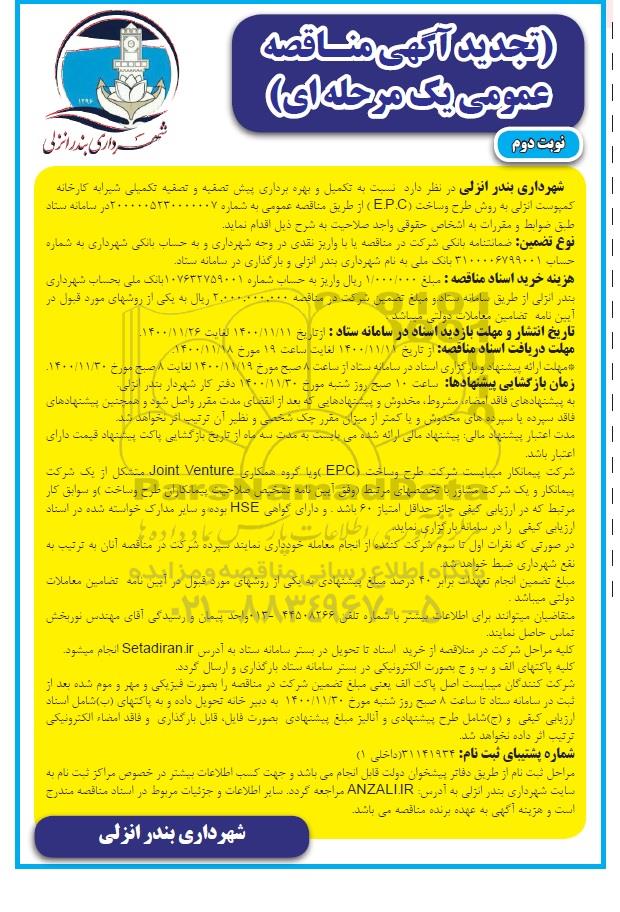 (تجدید آگهی مناقصه
عمومی یک مرحله ای)
نوبت دوم
۱۲۹۶
شهرداری بندرانزلی
شهرداری بندر انزلی در نظر دارد نسبت به تکمیل و بهره برداری پیش تصفیه و تصفیه تکمیلی شیرابه کارخانه
کمپوست انزلی به روش طرح وساخت (E.P.C ) از طریق مناقصه عمومی به شماره ۲۰۰۰۰۰۵۲۳۰۰۰۰۰۰۷در سامانه ستاد
طبق ضوابط و مقررات به اشخاص حقوقی واجد صلاحیت به شرح ذیل اقدام نماید.
نوع تضمین: ضمانتنامه بانکی شرکت در مناقصه یا با واریز نقدی در وجه شهرداری و به حساب بانکی شهرداری به شماره
حساب ۳۱۰۰۰۰۶۷۹۹۰۰۱ بانک ملی به نام شهرداری بندر انزلی و بارگذاری در سامانه ستاد.
هزینه خرید اسناد مناقصه : مبلغ ۱/۰۰۰/۰۰۰ ریال واریز به حساب شماره ۰۱۰۷۶۳۲۷۵۹۰۰۱بانک ملی بحساب شهرداری
بندر انزلی از طریق سامانه ستاد و مبلغ تضمین شرکت در مناقصه ۲.۰۰۰.۰۰۰.۰۰۰ ریال به یکی از روشهای مورد قبول در
آیین نامه تضامین معاملات دولتی میباشد .
تاریخ انتشار و مهلت بازدید اسناد در سامانه ستاد : ازتاریخ ۱۴۰۰/۱۱/۱۱ لغایت ۱۴۰۰/۱۱/۲۶.
مهلت دریافت اسناد مناقصه: از تاریخ ۱۴۰۰/۱۱/۱۱ لغایت ساعت ۱۹ مورخ ۱۴۰۰/۱۱/۱۸.
*مهلت ارائه پیشنهاد و بارگزاری اسناد در سامانه ستاد از ساعت ۸ صبح مورخ ۱۴۰۰/۱۱/۱۹ لغایت ۸ صبح مورخ ۱۴۰۰/۱۱/۳۰.
زمان بازگشایی پیشنهادها: ساعت ۱۰ صبح روز شنبه مورخ ۱۴۰۰/۱۱/۳۰ دفتر کار شهردار بندر انزلی.
به پیشنهادهای فاقد امضاء، مشروط، مخدوش و پیشنهادهایی که بعد از انقضای مدت مقرر واصل شود و همچنین پیشنهادهای
فاقد سپرده یا سپرده های مخدوش و یا کمتر از میزان مقرر چک شخصی و نظیر آن ترتیب اثر نخواهد شد.
مدت اعتبار پیشنهاد مالی: پیشنهاد مالی ارائه شده می بایست به مدت سه ماه از تاریخ بازگشایی پاکت پیشنهاد قیمت دارای
اعتبار باشد.
شرکت پیمانکار میبایست شرکت طرح وساخت (EPC.)ویا گروه همکاری Joint Venture متشکل از یک شرکت
پیمانکار و یک شرکت مشاور با تخصصهای مرتبط (وفق آیین نامه تشخیص صلاحیت پیمانکاران طرح وساخت )و سوابق کار
مرتبط که در ارزیابی کیفی حائز حداقل امتیاز ۶۰ باشد . و دارای گواهی HSE بوده و سایر مدارک خواسته شده در اسناد
ارزیابی کیفی را در سامانه بارگزاری نماید.
در صورتی که نفرات اول تا سوم شرکت کننده از انجام معامله خودداری نمایند سپرده شرکت در مناقصه آنان به ترتیب به
نفع شهرداری ضبط خواهد شد.
مبلغ تضمین انجام تعهدات برابر ۴۰ درصد مبلغ پیشنهادی به یکی از روشهای مورد قبول در آیین نامه تضامین معاملات
دولتی میباشد .
متقاضیان میتوانند برای اطلاعات بیشتر با شماره تلفن ۴۴۵۰۸۲۶۶-۰۱۳ واحد پیمان و رسیدگی آقای مهندس نوربخش
تماس حاصل نمایند.
کلیه مراحل شرکت در مناقصه از خرید اسناد تا تحویل در بستر سامانه ستاد به آدرس Setadiran.ir انجام میشود.
کلیه پاکتهای الف و ب و ج بصورت الکترونیکی در بستر سامانه ستاد بارگذاری و ارسال گردد.
شرکت کنندگان میبایست اصل پاکت الف یعنی مبلغ تضمین شرکت در مناقصه را بصورت فیزیکی و مهر و موم شده بعد از
ثبت در سامانه ستاد تا ساعت ۸ صبح روز شنبه مورخ ۱۴۰۰/۱۱/۳۰ به دبیر خانه تحویل داده و به پاکتهای (ب)شامل اسناد
ارزیابی کیفی و (ج)شامل طرح پیشنهادی و آنالیز مبلغ پیشنهادی بصورت فایل، قابل بارگذاری و فاقد امضاء الکترونیکی
ترتیب اثر داده نخواهد شد.
شماره پشتیبای ثبت نام: ۳۱۱۴۱۹۳۴(داخلی ۱)
مراحل ثبت نام از طریق دفاتر پیشخوان دولت قابل انجام می باشد و جهت کسب اطلاعات بیشتر در خصوص مراکز ثبت نام به
سایت شهرداری بندر انزلی به آدرس: ANZALI.IR مراجعه گردد. سایر اطلاعات و جزئیات مربوط در اسناد مناقصه مندرج
است و هزینه آگهی به عهده برنده مناقصه می باشد.
شهرداری بندر انزلی
ParsNamadData
پایگاه اطلاع رسانی مناقصه و مزایده
۰۲۱-۸۸۳۴۹۶۷۰-۵